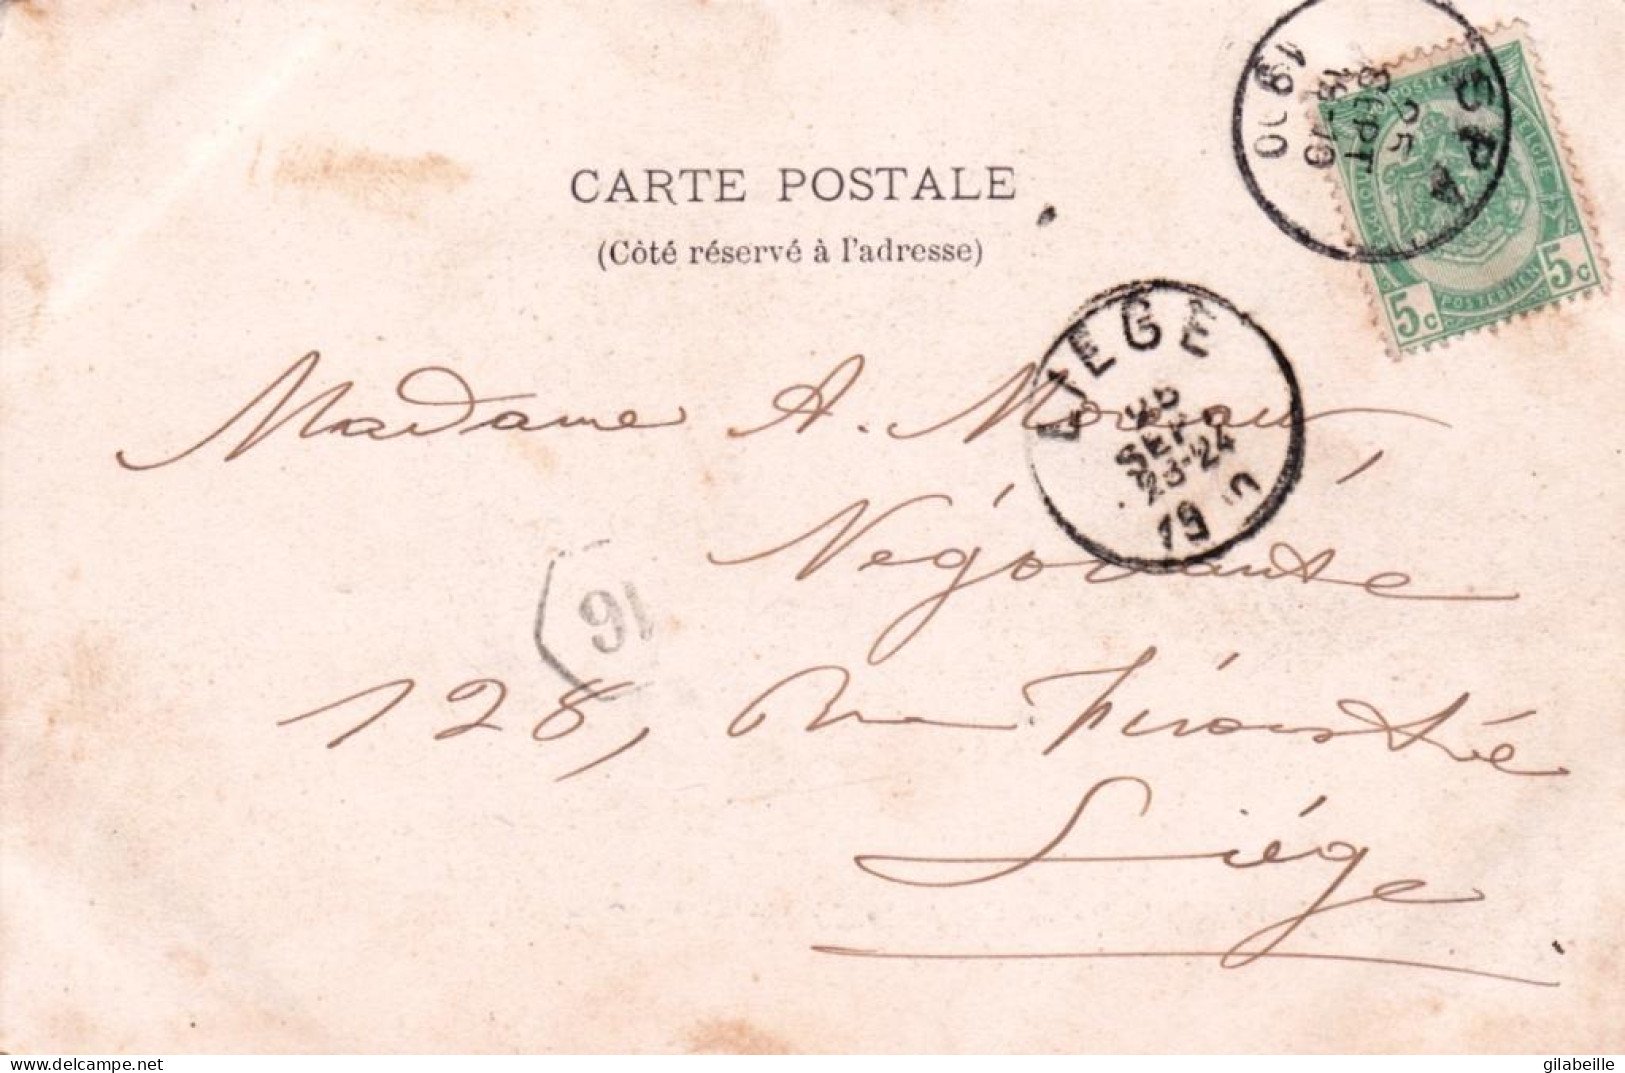 CARTE POSTALE
(Côté réservé à l'adresse)
SPA
25
SEPT
1900
POSTES
BELGIE
POSTERIJEN
5c 5c
LIEGE
SEPT
23-24
19
Madame A. Moreau
Négociante
91
128, Rue
Liége
delcampe.net
gilabeille